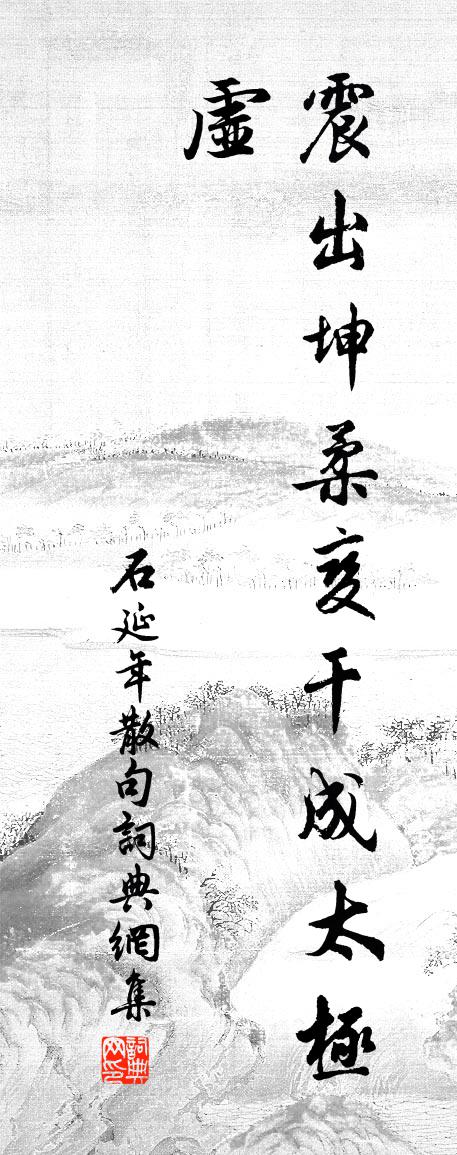 震出坤柔变干成太極
虛
石延年散句詞典網集
詞典
网印